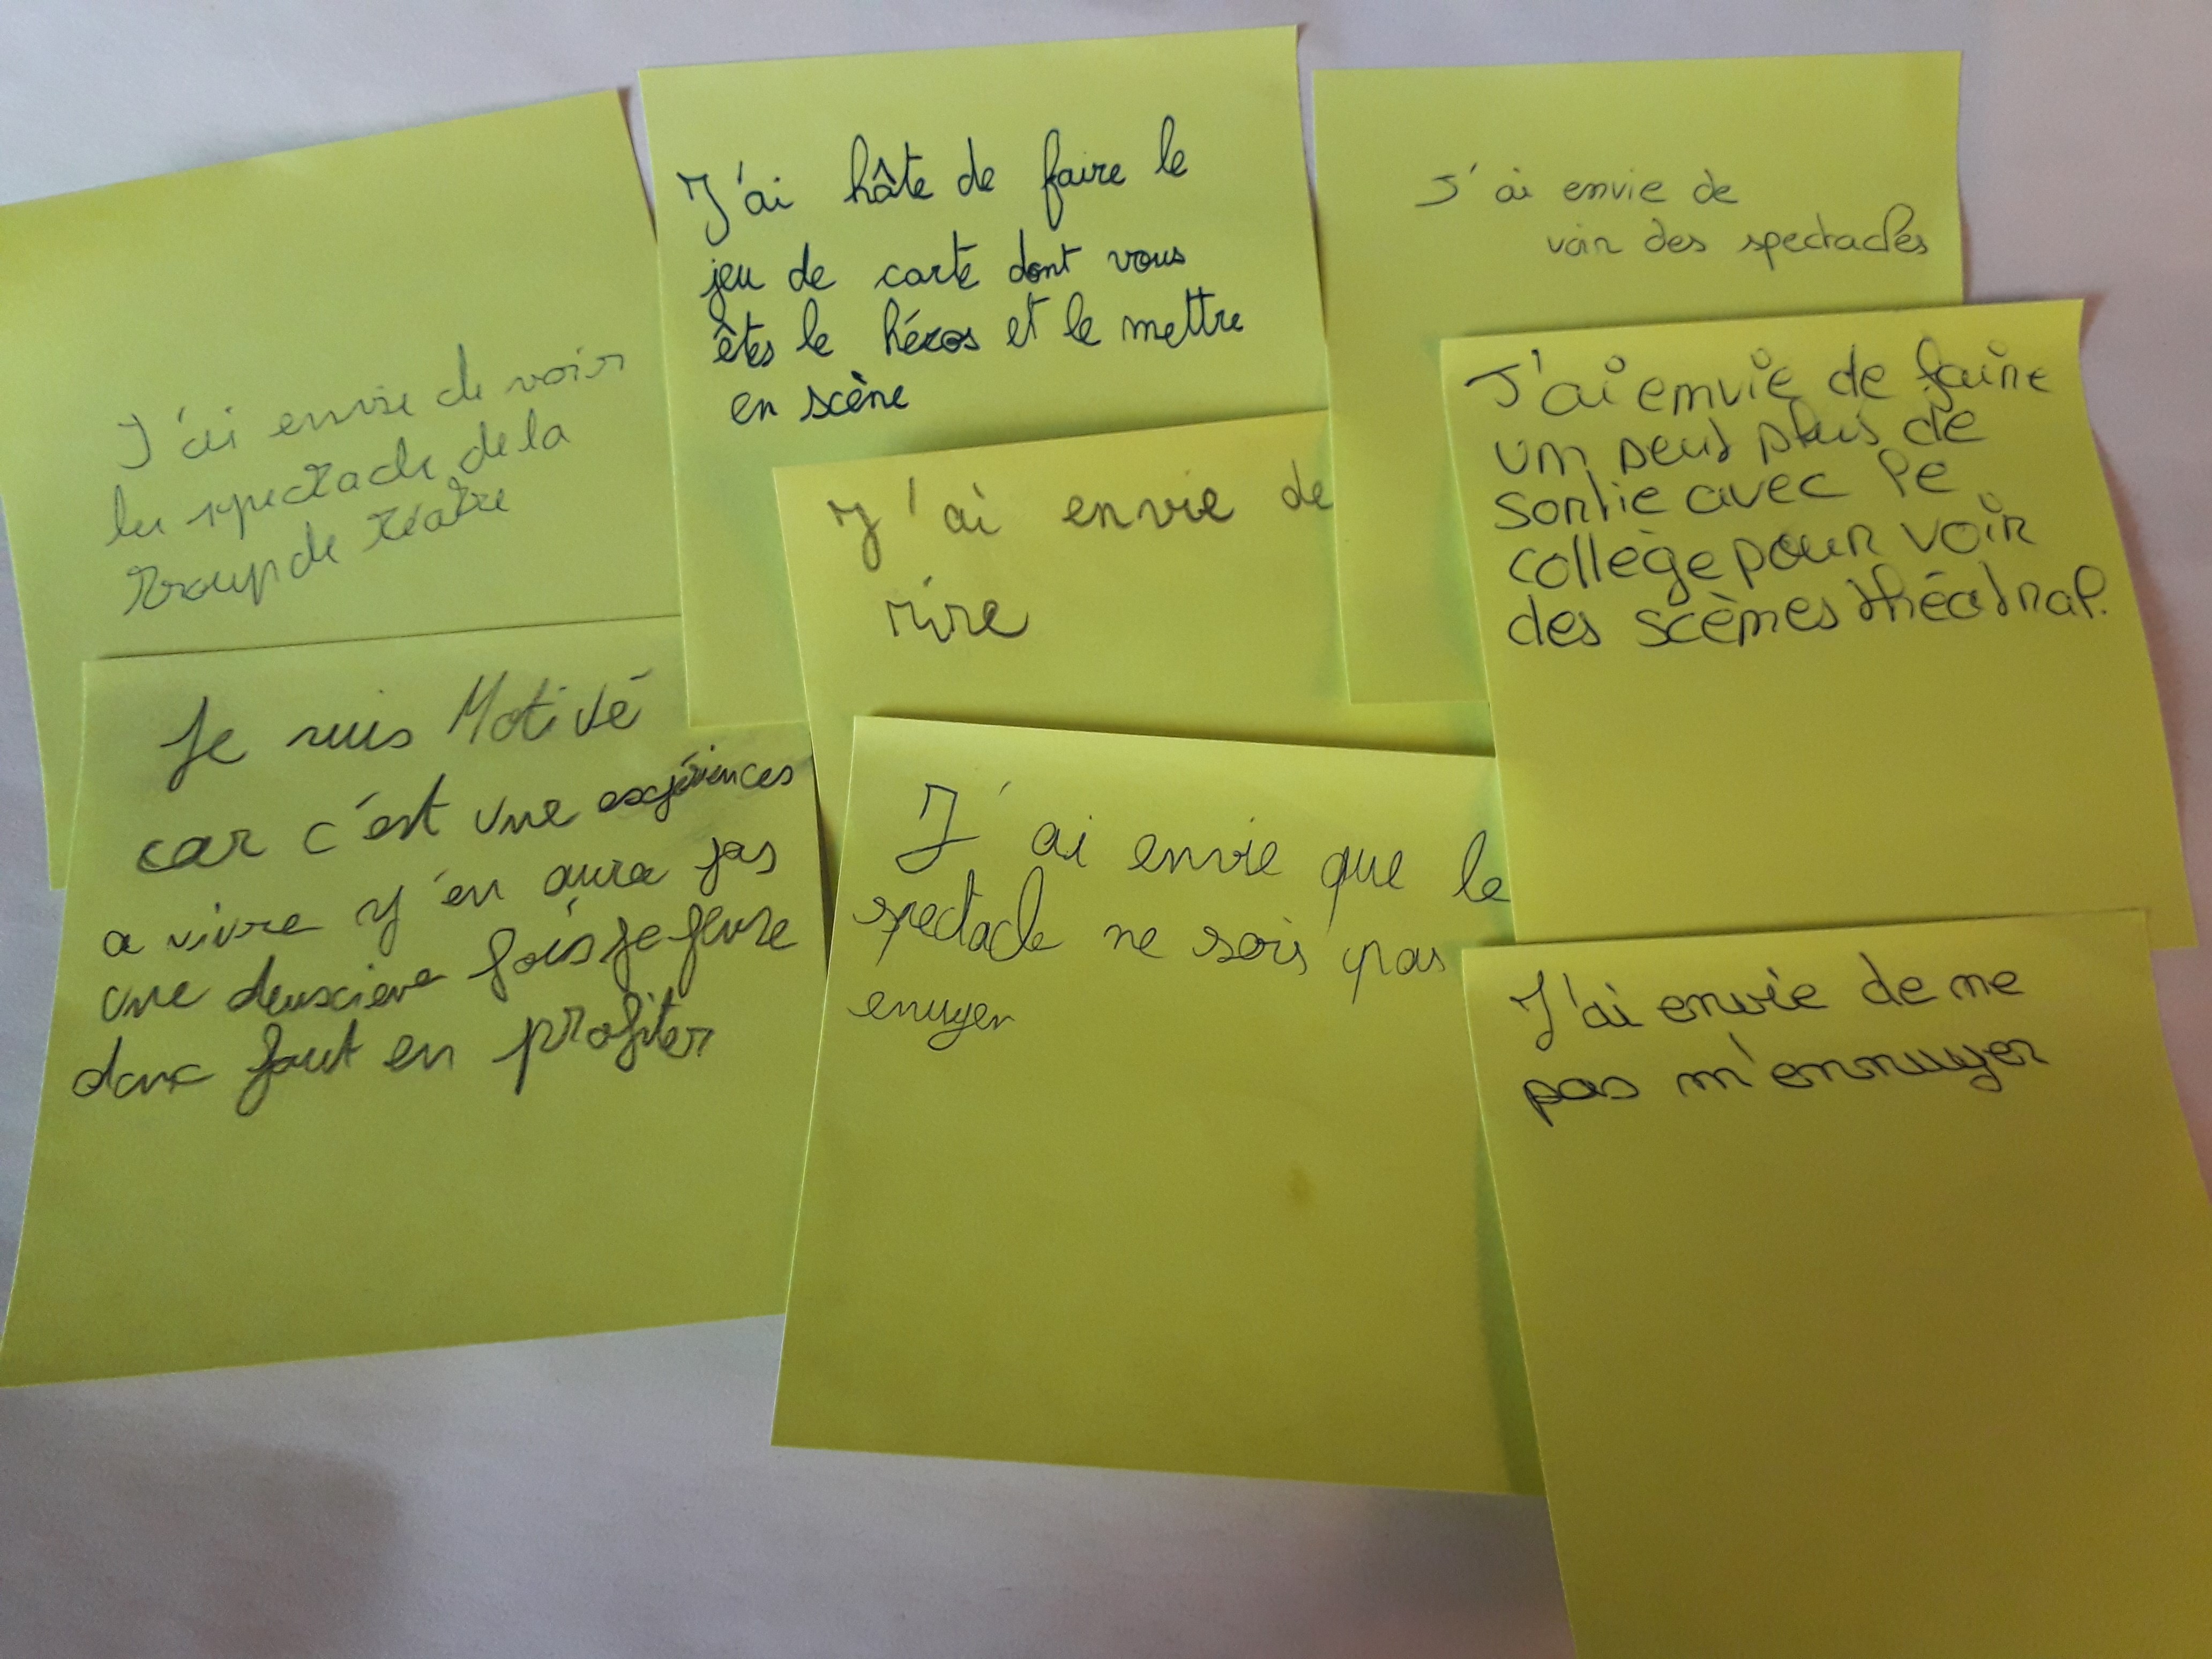 J'ai envie de voir
les spectacle de la
troup de téatre
J'ai hâte de faire le
jeu de carte dont vous
êtes le héros et le mettre
en scène
J'ai envie de
voir des spectacles
J'ai envie de
rire
J'ai envie de faire
un peut plus de
sortie avec le
collège pour voir
des scènes théatral.
Je suis Motivé
car c'est une expériences
a vivre y'en aura pas
une deuxieme fois je
donc faut en profiter
J'ai envie que le
spectacle ne sois pas
enuyer
J'ai envie de ne
pas m'ennuyer